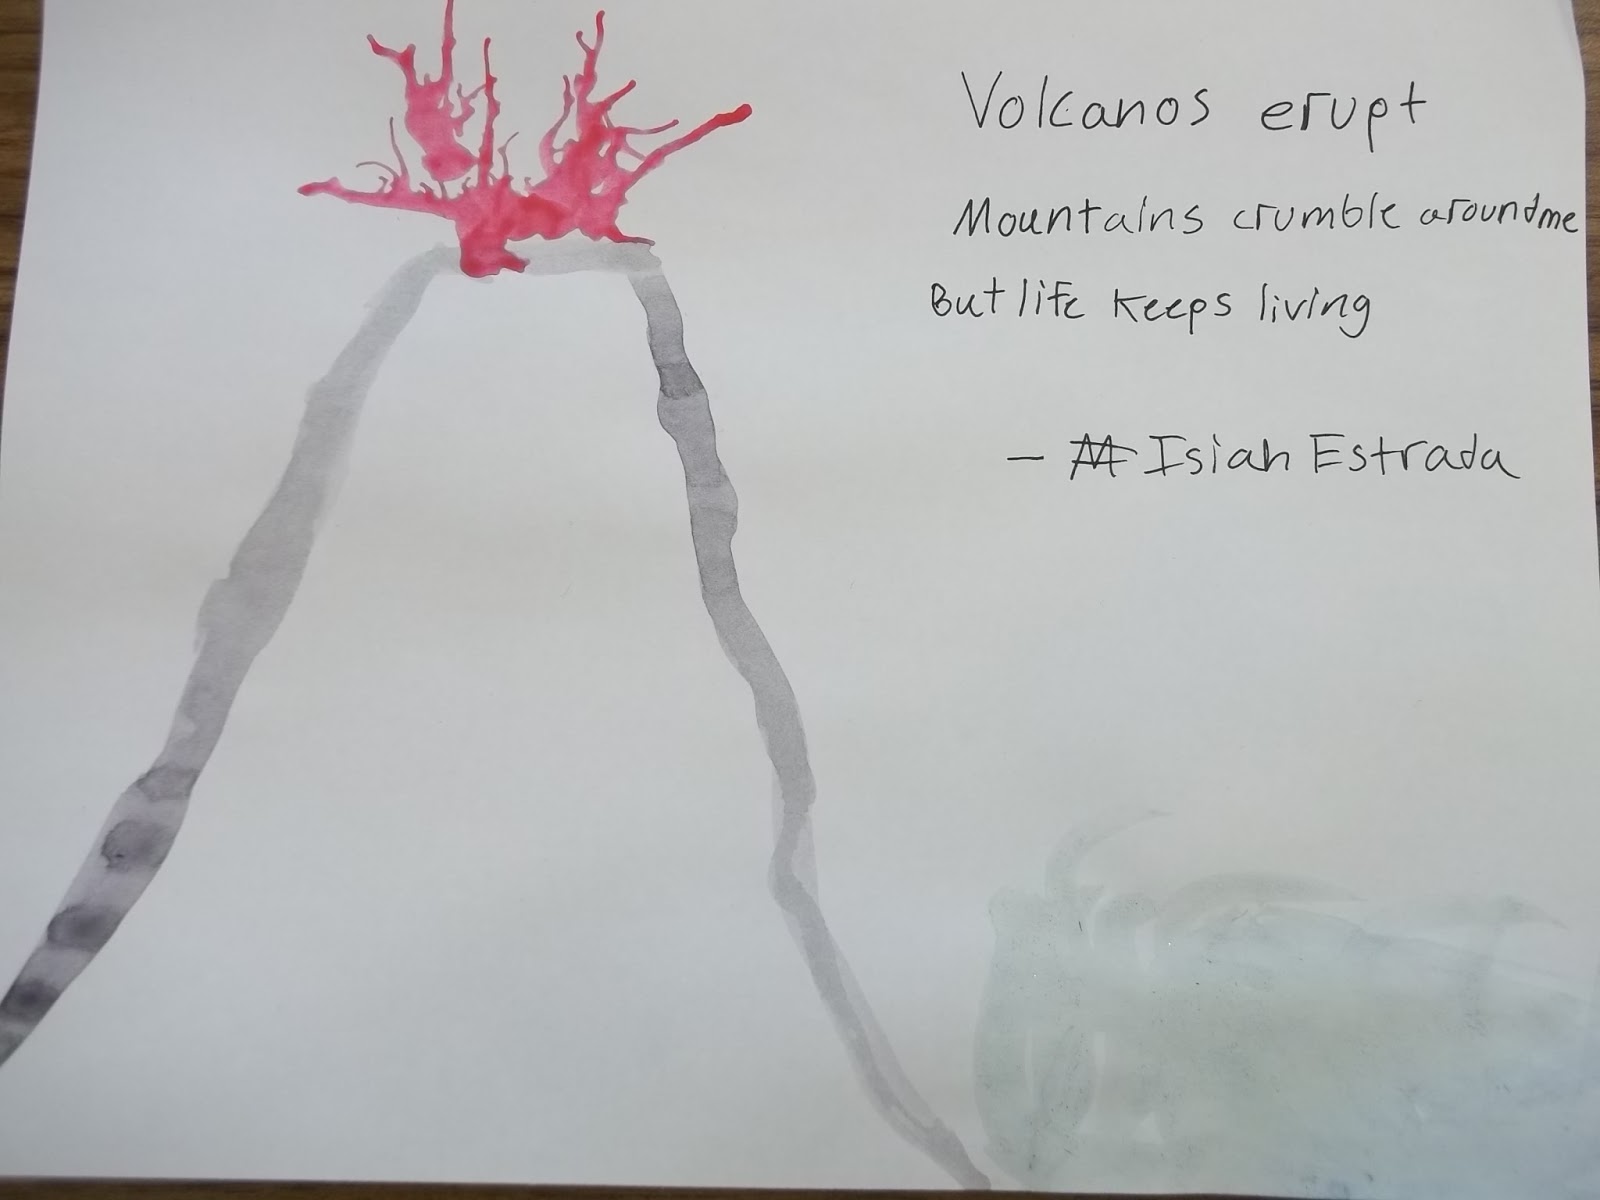 Volcanos erupt
Mountains crumble around me
But life keeps living
- Isiah Estrada